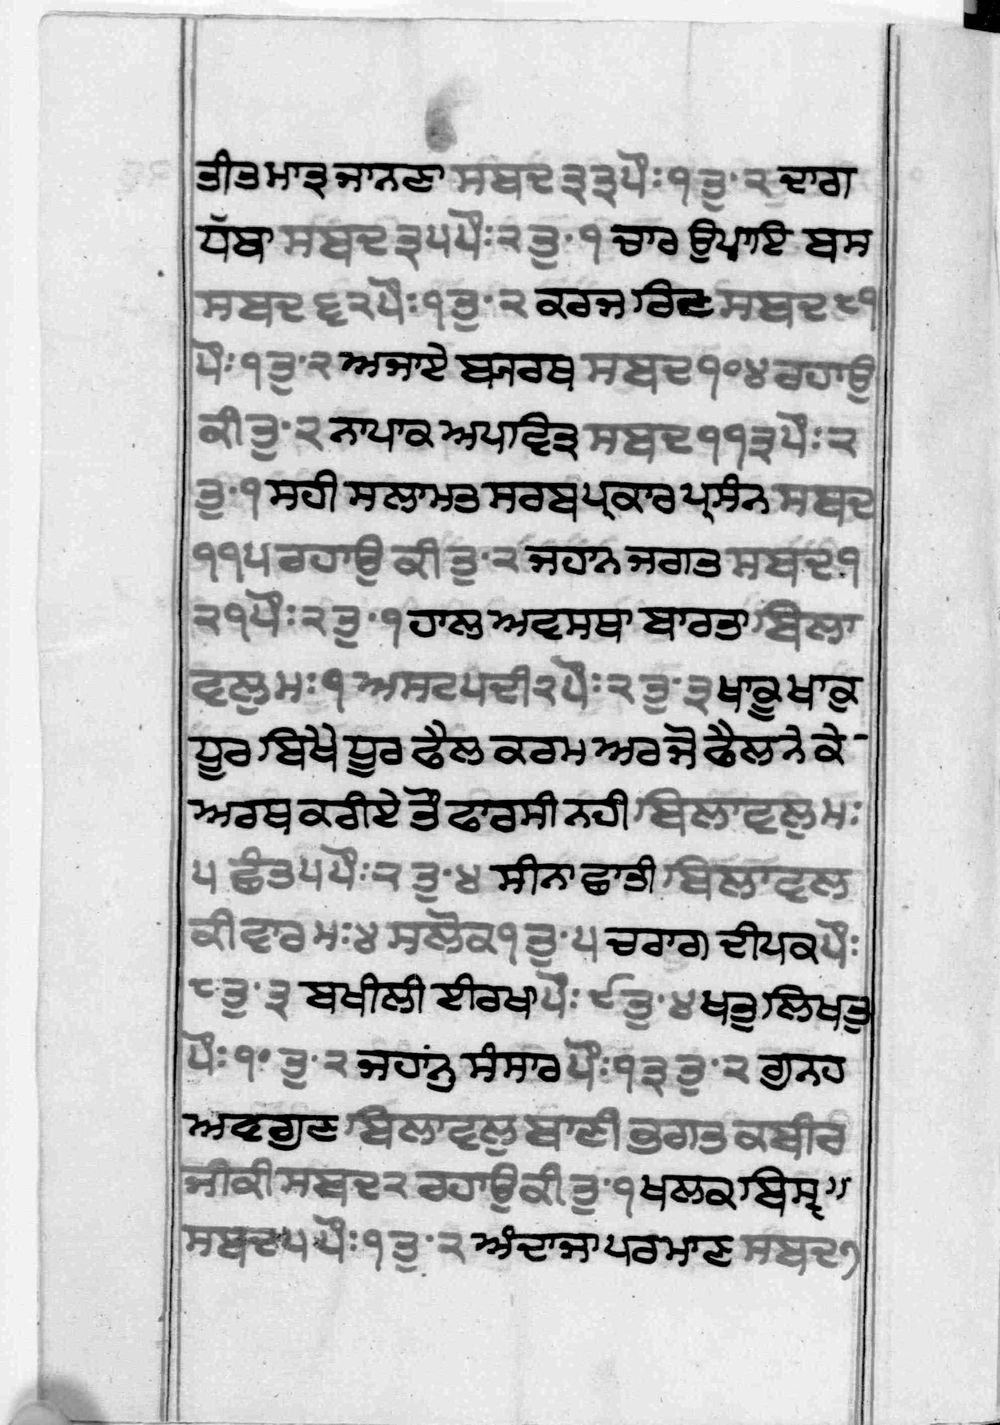 ਤੀਤ ਮਾਤ੍ਰ ਜਾਨਣਾ ਸਬਦ ੩੩ ਪੌਃ ੧ ਤੁ· ੨ ਦਾਗ
ਧੱਬਾ ਸਬਦ ੩੫ ਪੌਃ ੨ ਤੁ· ੧ ਚਾਰ ਉਪਾਇ ਬਸ
ਸਬਦ ੬੨ ਪੌਃ ੧ ਤੁ· ੨ ਕਰਜ ਰਿਣ ਸਬਦ ੯੧
ਪੌਃ ੧ ਤੁ· ੨ ਅਜਾਏ ਬ੍ਯਰਥ ਸਬਦ ੧੦੪ ਰਹਾਉ
ਕੀ ਤੁ· ੨ ਨਾਪਾਕ ਅਪਵਿਤ੍ਰ ਸਬਦ ੧੧੩ ਪੌਃ ੨
ਤੁ· ੧ ਸਹੀ ਸਲਾਮਤ ਸਰਬ ਪ੍ਰਕਾਰ ਪ੍ਰਸੰਨ ਸਬਦ
੧੧੫ ਰਹਾਉ ਕੀ ਤੁ· ੨ ਜਹਾਨ ਜਗਤ ਸਬਦ ੧
੨੧ ਪੌਃ ੨ ਤੁ· ੧ ਹਾਲ ਅਵਸਥਾ ਬਾਰਤਾ ਬਿਲਾ
ਵਲੁ ਮਃ ੧ ਅਸਟਪਦੀ ੨ ਪੌਃ ੨ ਤੁ· ੩ ਖਾਕੂ ਖਾਕੁ
ਧੂਰ ਬਿਖੇ ਧੂਰ ਫੈਲ ਕਰਮ ਅਰ ਜੋ ਫੈਲਨੇ ਕੇ
ਅਰਥ ਕਰੀਏ ਤੌ ਫਾਰਸੀ ਨਹੀ ਬਿਲਾਵਲੁ ਮਃ
੫ ਛੰਤ ੫ ਪੌਃ ੨ ਤੁ· ੪ ਸੀਨਾ ਛਾਤੀ ਬਿਲਾਵਲ
ਕੀ ਵਾਰ ਮਃ ੪ ਸਲੋਕ ੧ ਤੁ· ੫ ਚਰਾਗ ਦੀਪਕ ਪੌਃ
੮ ਤੁ· ੩ ਬਖੀਲੀ ਈਰਖਾ ਪੌਃ ੯ ਤੁ· ੪ ਖਤੁ ਲਿਖਤੁ
ਪੌਃ ੧੦ ਤੁ· ੨ ਜਹਾਂਨੁ ਸੰਸਾਰ ਪੌਃ ੧੩ ਤੁ· ੨ ਗੁਨਹ
ਅਵਗੁਣ ਬਿਲਾਵਲੁ ਬਾਣੀ ਭਗਤ ਕਬੀਰ
ਜੀ ਕੀ ਸਬਦ ੨ ਰਹਾਉ ਕੀ ਤੁ· ੧ ਖਲਕ ਬਿਸ੍ਵ
ਸਬਦ ੫ ਪੌਃ ੧ ਤੁ· ੨ ਅੰਦਾਜਾ ਪਰਮਾਣ ਸਬਦ ੭